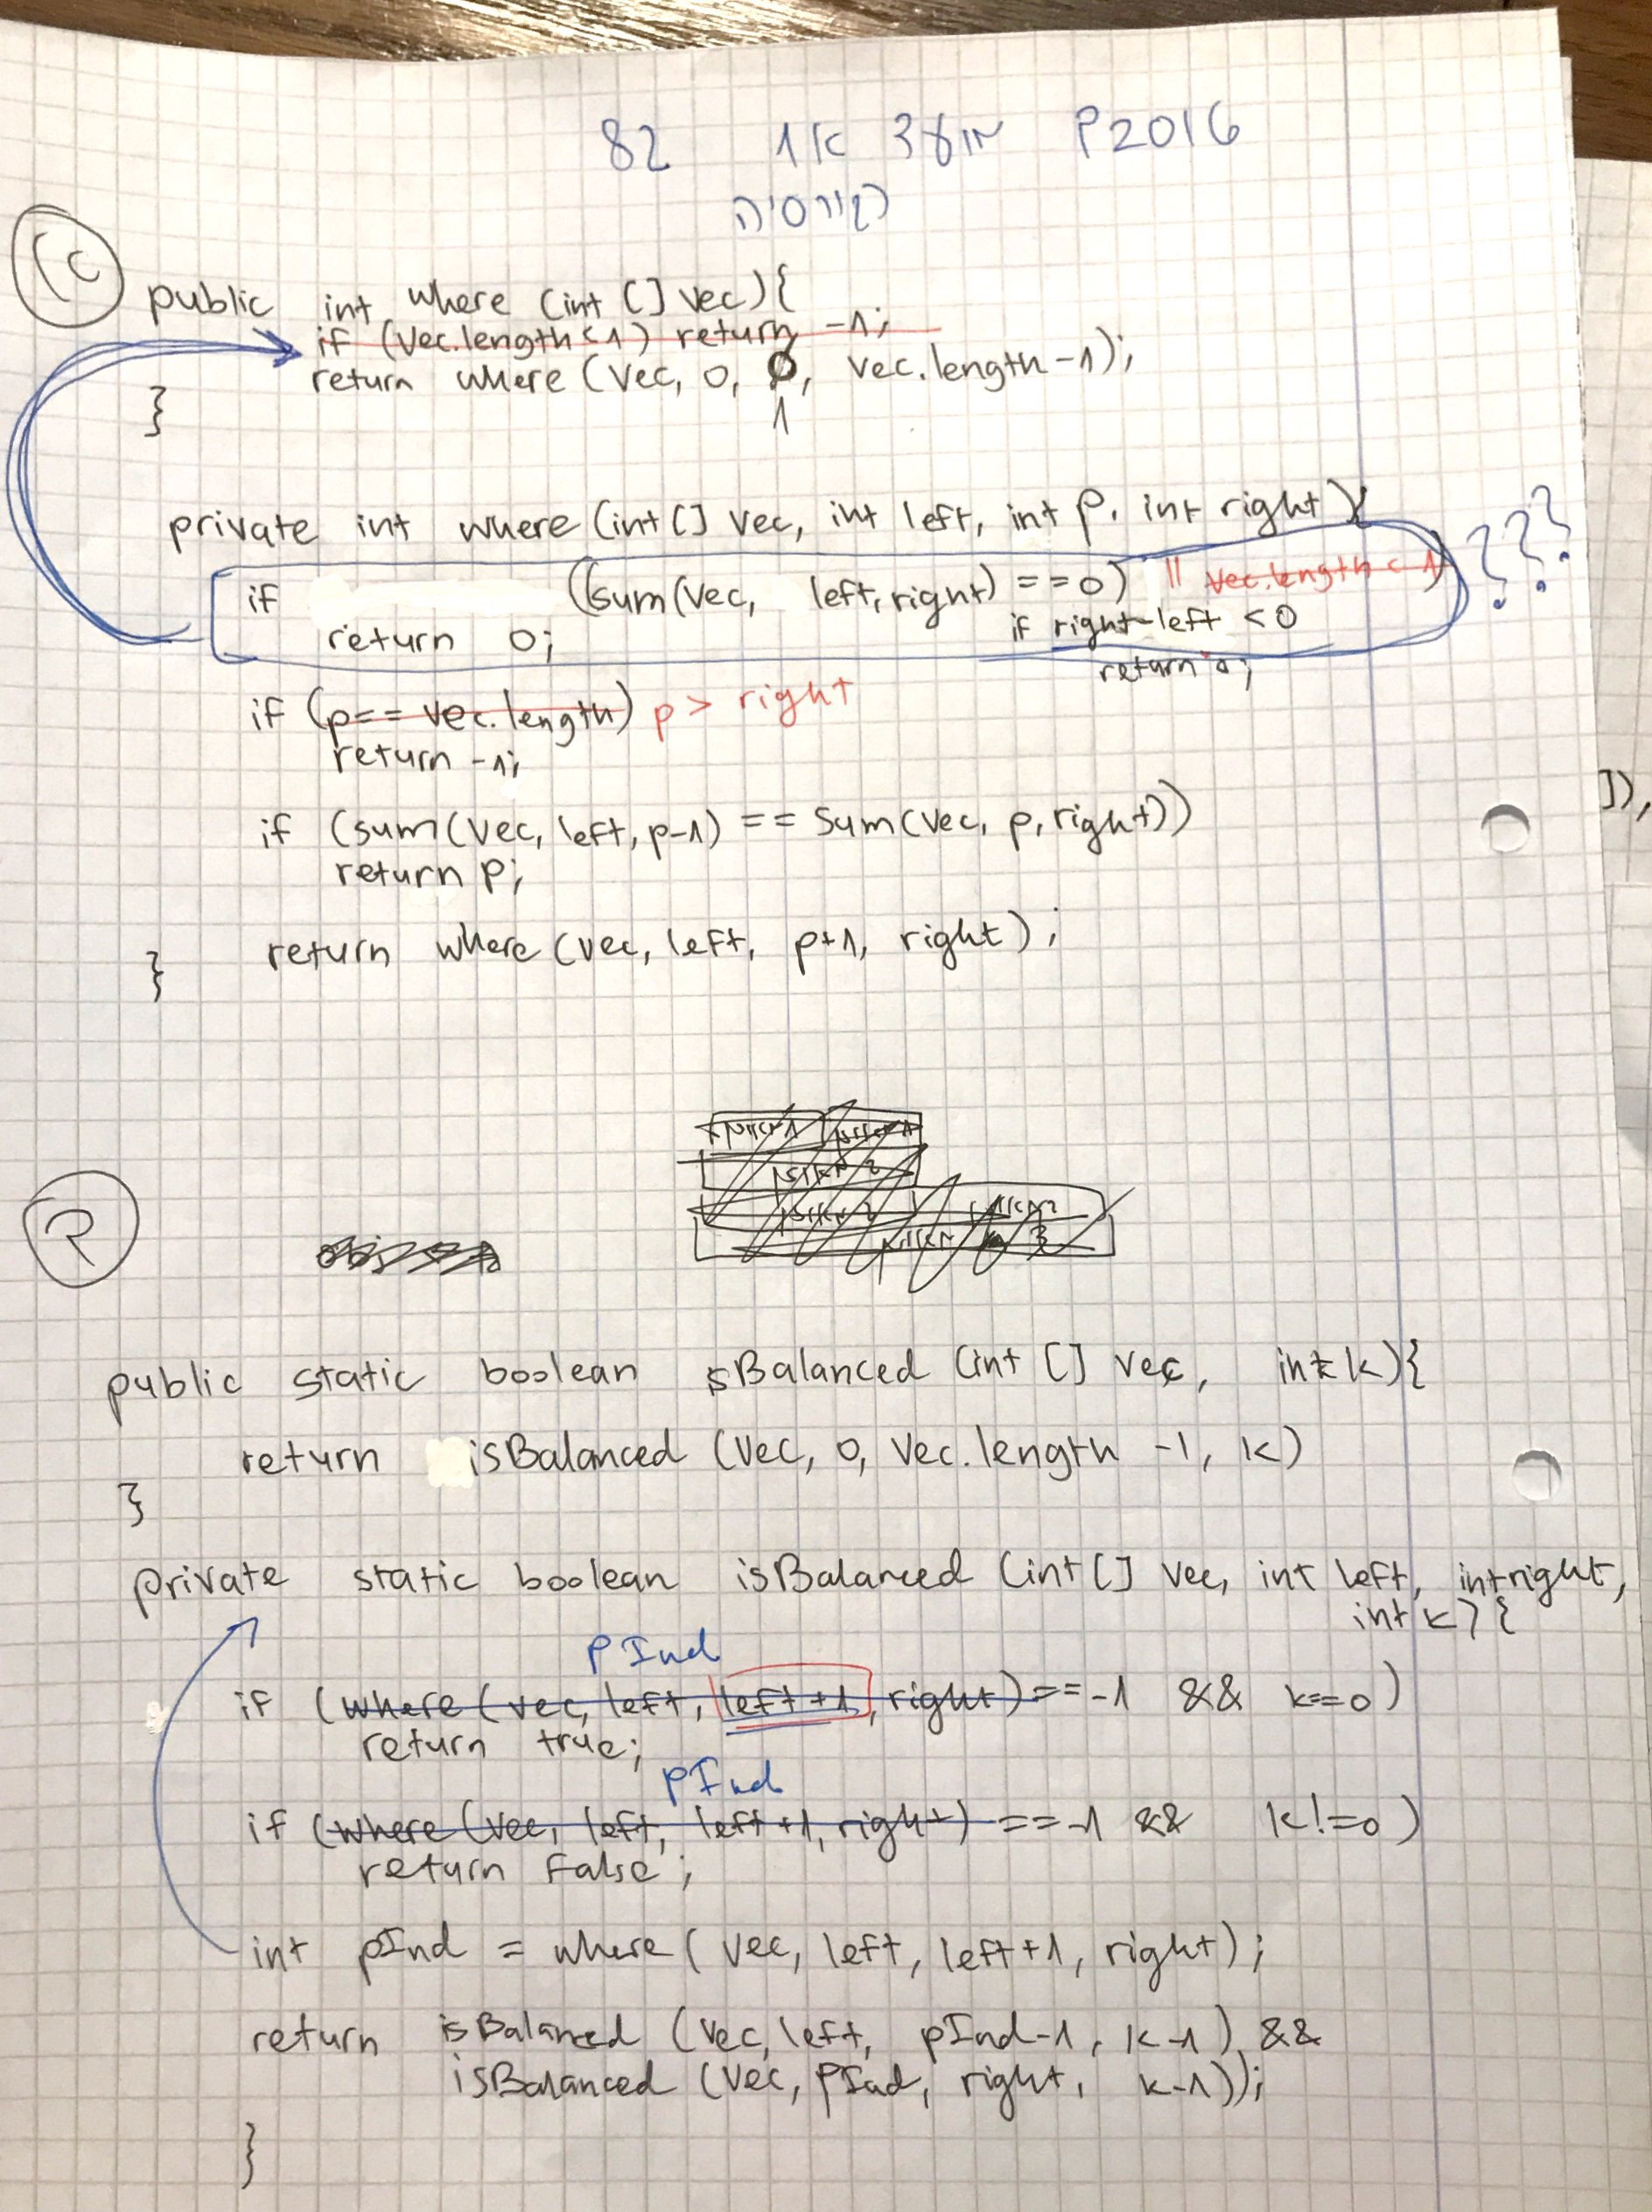 82 1א מועד P2016
גורסיה
public int where (int [] vec){
if (vec.length<1) return -1;
return where (vec, 0, 0, vec.length-1);
1
}
private int where (int[] vec, int left, int p, int right){
if ((sum(vec, left,right)==0) || vec.length<1) ???
return 0; if right-left <0
return 0;
if (p== vec.length) p> right
return -1;
if (sum(vec, left, p-1) == sum(vec, p, right))
return p;
return where (vec, left, p+1, right);
}
2
public static boolean isBalanced (int [] vec, int k){
return isBalanced (vec, 0, vec.length -1, k)
}
private static boolean isBalanced (int[] vec, int left, int right,
int k) {
pInd
if (where (vec, left, left+1, right)==-1 && k==0)
return true;
pInd
if (where (vec, left, left+1, right) ==-1 && k!=0)
return False;
int pInd = where (vec, left, left+1, right);
return isBalanced (vec, left, pInd-1, k-1) &&
isBalanced (vec, pInd, right, k-1));
}
]),